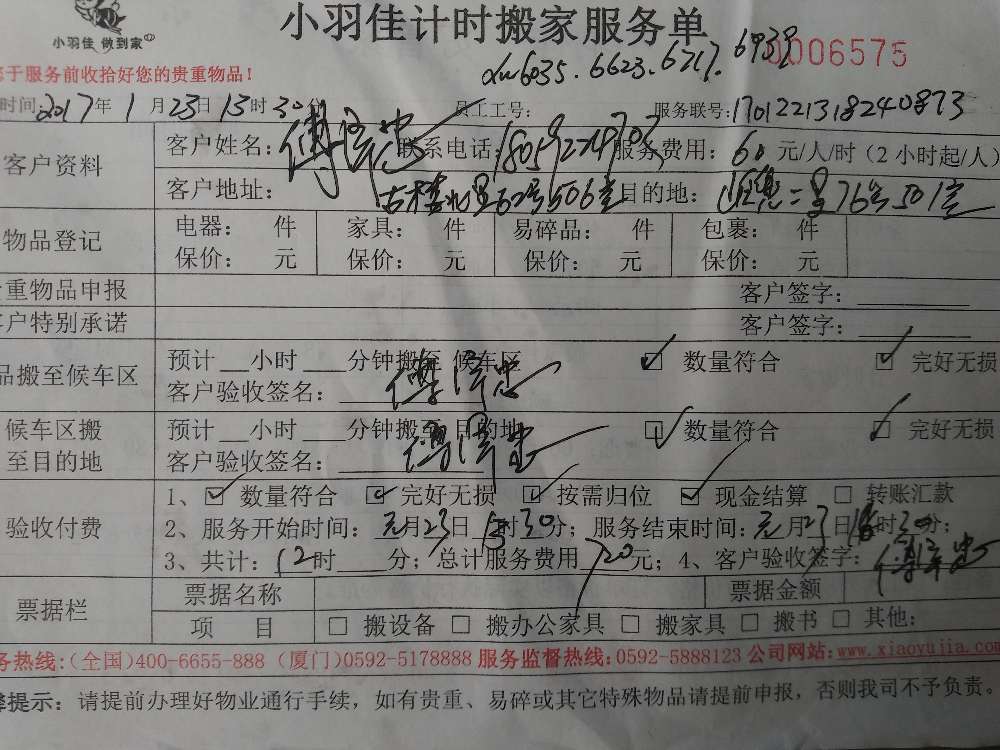 小羽佳 做到家
小羽佳计时搬家服务单
6035. 6623. 6217. 6939
0006575
于服务前收拾好您的贵重物品！
时间：2017年1月23日13时30分 员工工号： 服务联号：1701221318240873
客户资料
客户姓名：傅泽忠 联系电话：服务费用：60元/人/时（2小时起/人）
客户地址：古楼北里62号506室 目的地：二里76号501室
物品登记
电器： 件 家具： 件 易碎品： 件 包裹： 件
保价： 元 保价： 元 保价： 元 保价： 元
重物品申报 客户签字：
户特别承诺 客户签字：
品搬至候车区
预计 小时 分钟搬至 候车区 ☑ 数量符合 ☑ 完好无损
客户验收签名：傅泽忠
候车区搬
至目的地
预计 小时 分钟搬至 目的地 ☑ 数量符合 ☑ 完好无损
客户验收签名：傅泽忠
验收付费
1、☑ 数量符合 ☑ 完好无损 ☑ 按需归位 ☑ 现金结算 □ 转账汇款
2、服务开始时间：元月23日13时30分；服务结束时间：元月23日时30分；
3、共计：12时 分；总计服务费用720元；4、客户验收签字：傅泽忠
票据栏
票据名称 票据金额
项 目 □ 搬设备 □ 搬办公家具 □ 搬家具 □ 搬书 □ 其他：
务热线：（全国）400-6655-888（厦门）0592-5178888 服务监督热线：0592-5888123 公司网站：www.xiaoyujia.com
提示：请提前办理好物业通行手续，如有贵重、易碎或其它特殊物品请提前申报，否则我司不予负责。